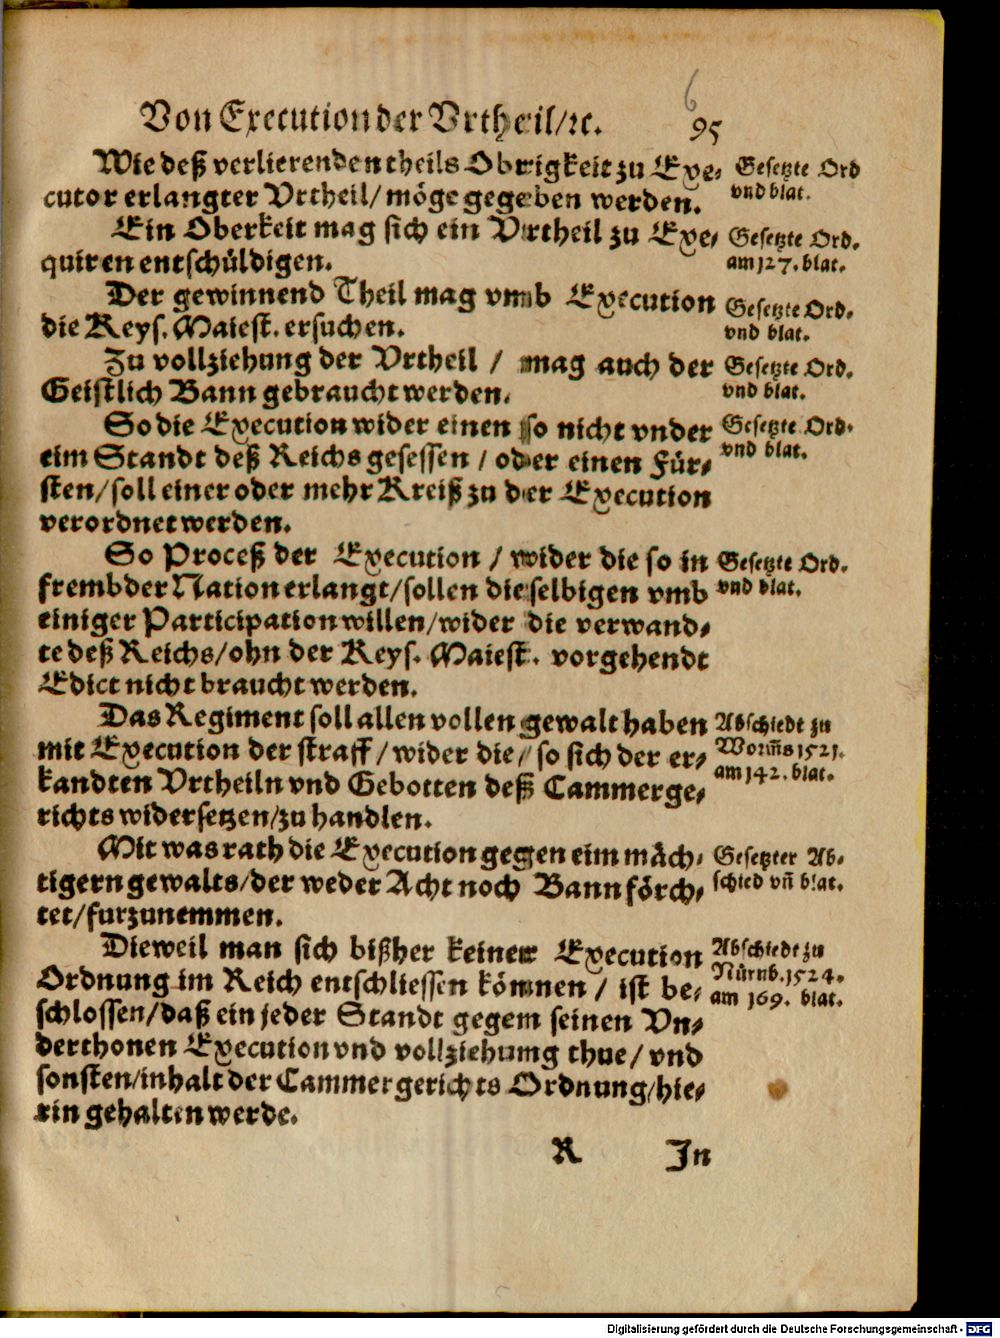 6
Von Execution der Vrtheil/ꝛc. 95
Wie deß verlierenden theils Obrigkeit zu Exe-
cutor erlangter Vrtheil/ möge gegeben werden.
Gesetzte Ord
vnd blat.
Ein Oberkeit mag sich ein Vrtheil zu Exe-
quiren entschüldigen.
Gesetzte Ord.
am 127. blat.
Der gewinnend Theil mag vmb Execution
die Keys. Maiest. ersuchen.
Gesetzte Ord.
vnd blat.
Zu vollziehung der Vrtheil / mag auch der
Geistlich Bann gebraucht werden.
Gesetzte Ord.
vnd blat.
So die Execution wider einen so nicht vnder
eim Standt deß Reichs gesessen / oder einen Für-
sten/ soll einer oder mehr Kreiß zu der Execution
verordnet werden.
Gesetzte Ord.
vnd blat.
So Proceß der Execution / wider die so in
frembder Nation erlangt/ sollen die selbigen vmb
einiger Participation willen/ wider die verwand-
te deß Reichs/ ohn der Keys. Maiest. vorgehendt
Edict nicht braucht werden.
Gesetzte Ord.
vnd blat.
Das Regiment soll allen vollen gewalt haben
mit Execution der straff / wider die / so sich der er-
kandten Vrtheiln vnd Gebotten deß Cammerge-
richts widersetzen/ zu handlen.
Abschiedt zu
Worm̃s 1521.
am 142. blat.
Mit was rath die Execution gegen eim mäch-
tigern gewalts/ der weder Acht noch Bann förch-
tet/ furzunemmen.
Gesetzter Ab-
schied vñ blat.
Dieweil man sich bißher keiner Execution
Ordnung im Reich entschliessen können / ist be-
schlossen/ daß ein jeder Standt gegem seinen Vn-
derthonen Execution vnd vollziehumg thue / vnd
sonsten/ inhalt der Cammergerichts Ordnung/ hie-
rin gehalten werde.
Abschiedt zu
Nürnb. 1524.
am 169. blat.
R In
Digitalisierung gefördert durch die Deutsche Forschungsgemeinschaft - DFG